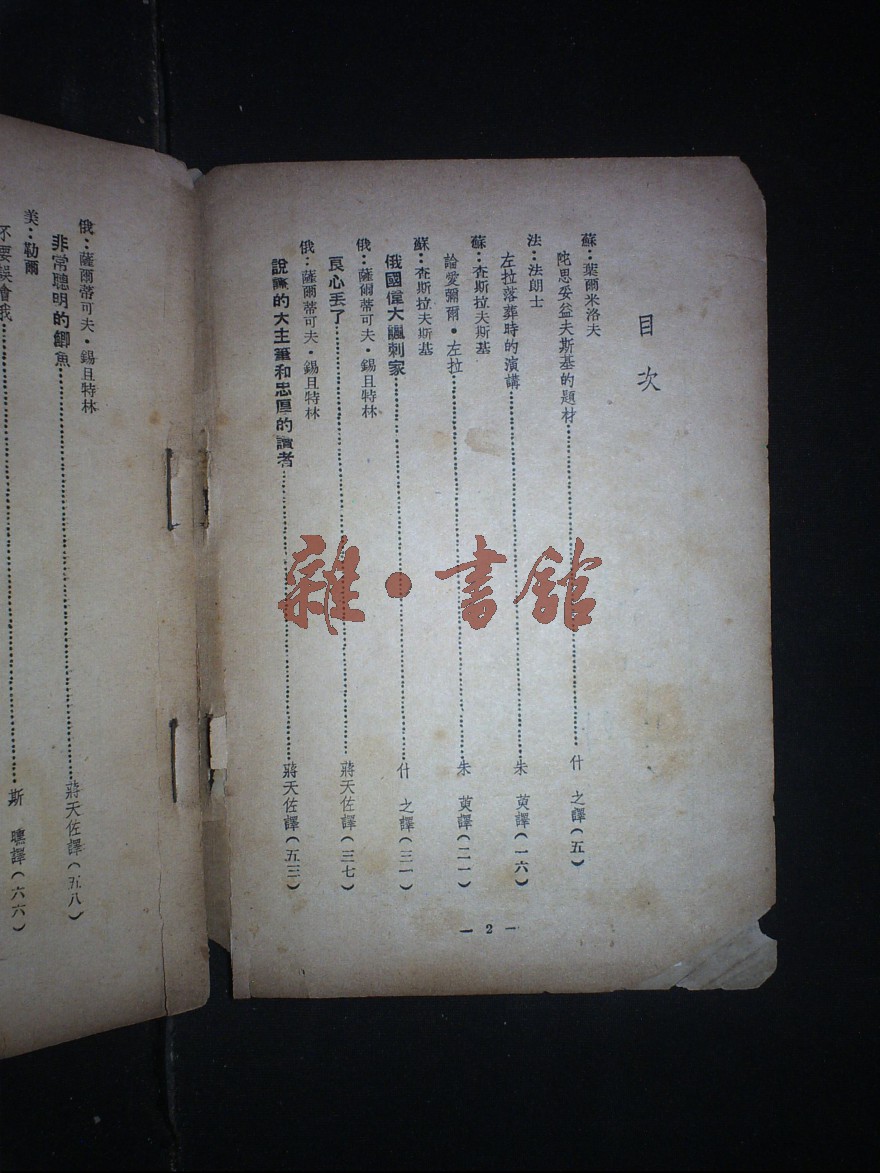 目次
蘇：葉爾米洛夫
陀思妥益夫斯基的題材……什之譯（五）
法：法朗士
左拉落葬時的演講……朱茰譯（一六）
蘇：查斯拉夫斯基
論愛彌爾・左拉……朱茰譯（二一）
蘇：查斯拉夫斯基
俄國偉大諷刺家……什之譯（三一）
俄：薩爾蒂可夫・錫且特林
良心丟了……蔣天佐譯（三七）
俄：薩爾蒂可夫・錫且特林
說謊的大主筆和忠厚的讀者……蔣天佐譯（五三）
— 2 —
俄：薩爾蒂可夫・錫且特林
非常聰明的鯽魚……蔣天佐譯（五八）
美：勒爾
不要誤會我……斯聰譯（六六）
雜・書館